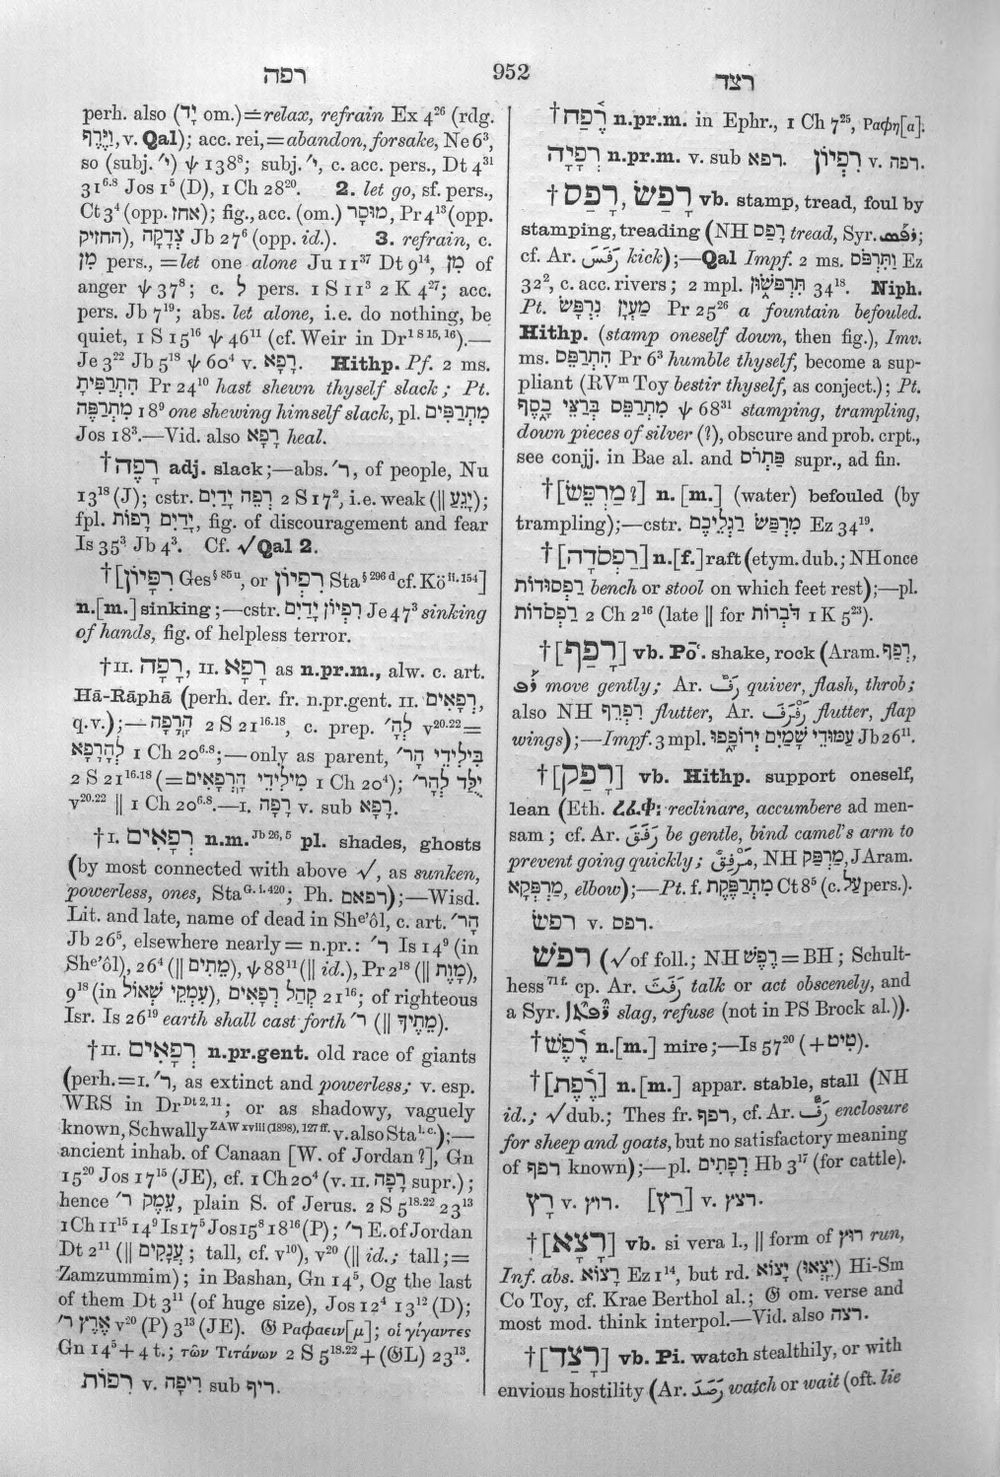 רפה
952
רצד
perh. also (יָד om.)=relax, refrain Ex 4²⁶ (rdg.
וַיִּרֶף, v. Qal); acc. rei,=abandon, forsake, Ne 6³,
so (subj. י׳) ψ 138⁸; subj. י׳, c. acc. pers., Dt 4³¹
31⁶·⁸ Jos 1⁵ (D), 1 Ch 28²⁰. 2. let go, sf. pers.,
Ct 3⁴ (opp. אחז); fig., acc. (om.) מוּסָר, Pr 4¹³ (opp.
החזיק), צְדָקָה Jb 27⁶ (opp. id.). 3. refrain, c.
מִן pers., =let one alone Ju 11³⁷ Dt 9¹⁴, מִן of
anger ψ 37⁸; c. לְ pers. 1 S 11³ 2 K 4²⁷; acc.
pers. Jb 7¹⁹; abs. let alone, i.e. do nothing, be
quiet, 1 S 15¹⁶ ψ 46¹¹ (cf. Weir in Dr¹ ˢ ¹⁵, ¹⁶).—
Je 3²² Jb 5¹⁸ ψ 60⁴ v. רָפָא. Hithp. Pf. 2 ms.
הִתְרַפִּיתָ Pr 24¹⁰ hast shewn thyself slack; Pt.
מִתְרַפֶּה 18⁹ one shewing himself slack, pl. מִתְרַפִּים
Jos 18³.—Vid. also רָפָא heal.
†רָפֶה adj. slack;—abs. ר׳, of people, Nu
13¹⁸ (J); cstr. רְפֵה יָדַיִם 2 S 17², i.e. weak (|| יָגֵעַ);
fpl. יָדַיִם רָפוֹת, fig. of discouragement and fear
Is 35³ Jb 4³. Cf. √Qal 2.
†[רִפָּיוֹן Ges§ ⁸⁵ ᵘ, or רִפְיוֹן Sta§ ²⁹⁶ ᵈ cf. Köⁱⁱ·¹⁵⁴]
n.[m.] sinking;—cstr. רִפְיוֹן יָדַיִם Je 47³ sinking
of hands, fig. of helpless terror.
†II. רָפָה, II. רָפָא as n.pr.m., alw. c. art.
Hā-Rāphā (perh. der. fr. n.pr.gent. II. רְפָאִים,
q.v.);—הָרָפָה 2 S 21¹⁶·¹⁸, c. prep. לְהָ׳ v²⁰·²²=
לְהָרָפָא 1 Ch 20⁶·⁸;—only as parent, בִּילִידֵי הָר׳
2 S 21¹⁶·¹⁸ (=מִילִידֵי הָרְפָאִים 1 Ch 20⁴); יֻלַּד לְהָר׳
v²⁰·²² || 1 Ch 20⁶·⁸.—I. רָפָה v. sub רָפָא.
†I. רְפָאִים n.m. ᴶᵇ ²⁶, ⁵ pl. shades, ghosts
(by most connected with above √, as sunken,
powerless, ones, Staᴳ· ⁱ· ⁴²⁰; Ph. רפאם);—Wisd.
Lit. and late, name of dead in Sheʾôl, c. art. הָר׳
Jb 26⁵, elsewhere nearly= n.pr.: ר׳ Is 14⁹ (in
Sheʾôl), 26⁴ (|| מֵתִים), ψ 88¹¹ (|| id.), Pr 2¹⁸ (|| מָוֶת),
9¹⁸ (in עִמְקֵי שְׁאוֹל), קְהַל רְפָאִים 21¹⁶; of righteous
Isr. Is 26¹⁹ earth shall cast forth ר׳ (|| מֵתֶיךָ).
†II. רְפָאִים n.pr.gent. old race of giants
(perh.=I. ר׳, as extinct and powerless; v. esp.
WRS in Drᴰᵗ ², ¹¹; or as shadowy, vaguely
known, Schwally ZAW xviii (1898), 127 ff. v. also Sta l. c.);—
ancient inhab. of Canaan [W. of Jordan ?], Gn
15²⁰ Jos 17¹⁵ (JE), cf. 1 Ch 20⁴ (v. II. רָפָה supr.);
hence עֵמֶק ר׳, plain S. of Jerus. 2 S 5¹⁸·²² 23¹³
1 Ch 11¹⁵ 14⁹ Is 17⁵ Jos 15⁸ 18¹⁶ (P); ר׳ E. of Jordan
Dt 2¹¹ (|| עֲנָקִים; tall, cf. v¹⁰), v²⁰ (|| id.; tall;=
Zamzummim); in Bashan, Gn 14⁵, Og the last
of them Dt 3¹¹ (of huge size), Jos 12⁴ 13¹² (D);
אֶרֶץ ר׳ v²⁰ (P) 3¹³ (JE). 𝔊 Ραφαειν[μ]; οἱ γίγαντες
Gn 14⁵+ 4 t.; τῶν Τιτάνων 2 S 5¹⁸·²²+(𝔊L) 23¹³.
רִפוֹת v. רִיפָה sub ריף.
†רֶפַח n.pr.m. in Ephr., 1 Ch 7²⁵, Ραφη[α].
רְפָיָה n.pr.m. v. sub רפא. רִפְיוֹן v. רפה.
†רָפַשׂ, רָפַס vb. stamp, tread, foul by
stamping, treading (NH רָפַס tread, Syr. ܪܦܣ;
cf. Ar. رَفَسَ kick);—Qal Impf. 2 ms. וַתִּרְפֹּס Ez
32², c. acc. rivers; 2 mpl. תִּרְפֹּשׂוּן 34¹⁸. Niph.
Pt. מַעְיָן נִרְפָּשׂ Pr 25²⁶ a fountain befouled.
Hithp. (stamp oneself down, then fig.), Imv.
ms. הִתְרַפֵּס Pr 6³ humble thyself, become a sup-
pliant (RVᵐ Toy bestir thyself, as conject.); Pt.
מִתְרַפֵּס בְּרַצֵּי כָסֶף ψ 68³¹ stamping, trampling,
down pieces of silver (?), obscure and prob. crpt.,
see conjj. in Bae al. and פַּתְרֹם supr., ad fin.
†[מִרְפָּשׂ ?] n. [m.] (water) befouled (by
trampling);—cstr. מִרְפַּשׂ רַגְלֵיכֶם Ez 34¹⁹.
†[רַפְסֹדָה] n.[f.] raft (etym. dub.; NH once
רַפְסוּדוֹת bench or stool on which feet rest);—pl.
רַפְסֹדוֹת 2 Ch 2¹⁶ (late || for דֹּבְרוֹת 1 K 5²³).
†[רָפַף] vb. Pōʿ. shake, rock (Aram. רַפֵּף,
ܪܦ move gently; Ar. رَفَّ quiver, flash, throb;
also NH רִפְרֵף flutter, Ar. رَفْرَفَ flutter, flap
wings);—Impf. 3 mpl. עַמּוּדֵי שָׁמַיִם יְרוֹפָפוּ Jb 26¹¹.
†[רָפַק] vb. Hithp. support oneself,
lean (Eth. ረፈቀ: reclinare, accumbere ad men-
sam; cf. Ar. رَفَقَ be gentle, bind camel's arm to
prevent going quickly; مِرْفَقٌ, NH מַרְפֵּק, J Aram.
מַרְפְּקָא, elbow);—Pt. f. מִתְרַפֶּקֶת Ct 8⁵ (c. עַל pers.).
רפשׂ v. רפס.
רפשׁ (√of foll.; NH רֶפֶשׁ=BH; Schult-
hess⁷¹ ᶠ· cp. Ar. رَفَثَ talk or act obscenely, and
a Syr. ܪܦܬܐ slag, refuse (not in PS Brock al.)).
†רֶפֶשׁ n.[m.] mire;—Is 57²⁰ (+טִיט).
†[רֶפֶת] n.[m.] appar. stable, stall (NH
id.; √dub.; Thes fr. רפף, cf. Ar. رَفٌّ enclosure
for sheep and goats, but no satisfactory meaning
of רפף known);—pl. רְפָתִים Hb 3¹⁷ (for cattle).
רָץ v. רוץ. [רַץ] v. רצץ.
†[רָצָא] vb. si vera l., || form of רוּץ run,
Inf. abs. רָצוֹא Ez 1¹⁴, but rd. יָצוֹא (יָצְאוּ) Hi-Sm
Co Toy, cf. Krae Berthol al.; 𝔊 om. verse and
most mod. think interpol.—Vid. also רצה.
†[רָצַד] vb. Pi. watch stealthily, or with
envious hostility (Ar. رَصَدَ watch or wait (oft. lie